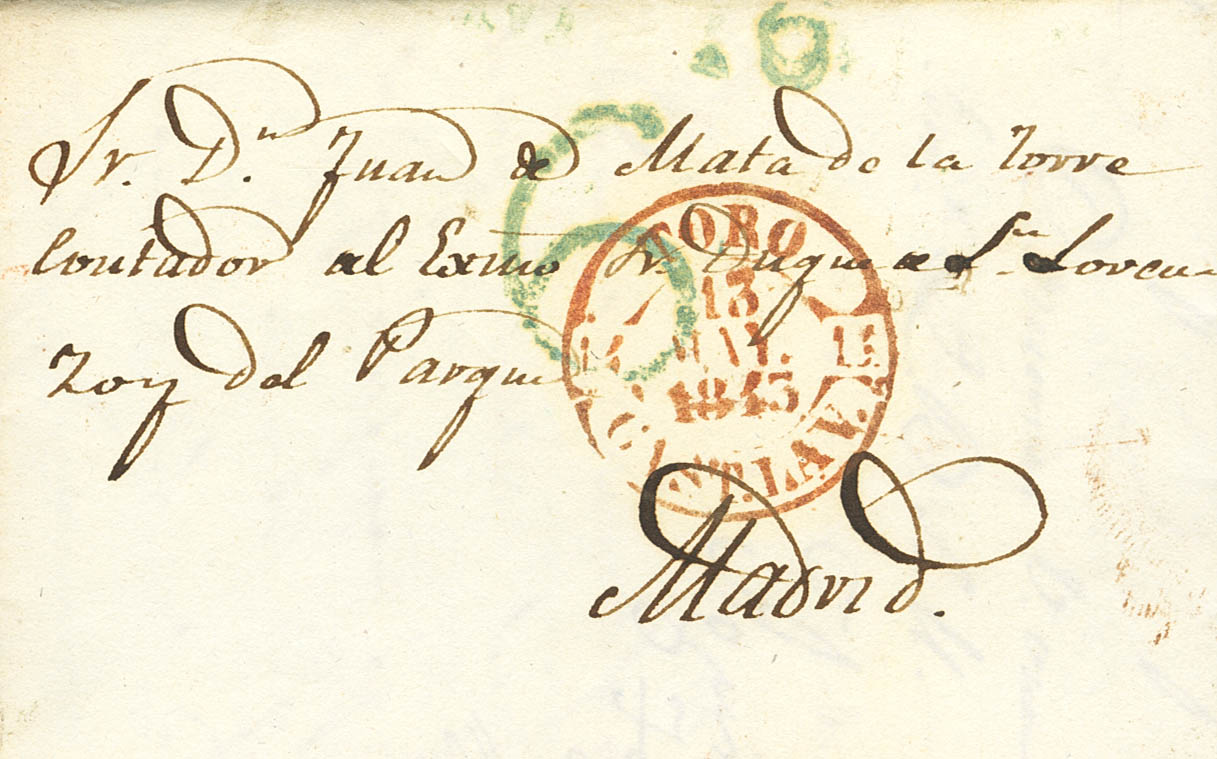 Sr. Dⁿ. Juan de Mata de la Torre
Contador al Exmo Sr. Duque de Sⁿ. Loren-
zo y del Parque
Madrid.
TORO
13
MAY.
1843
CAST.LA V.
6